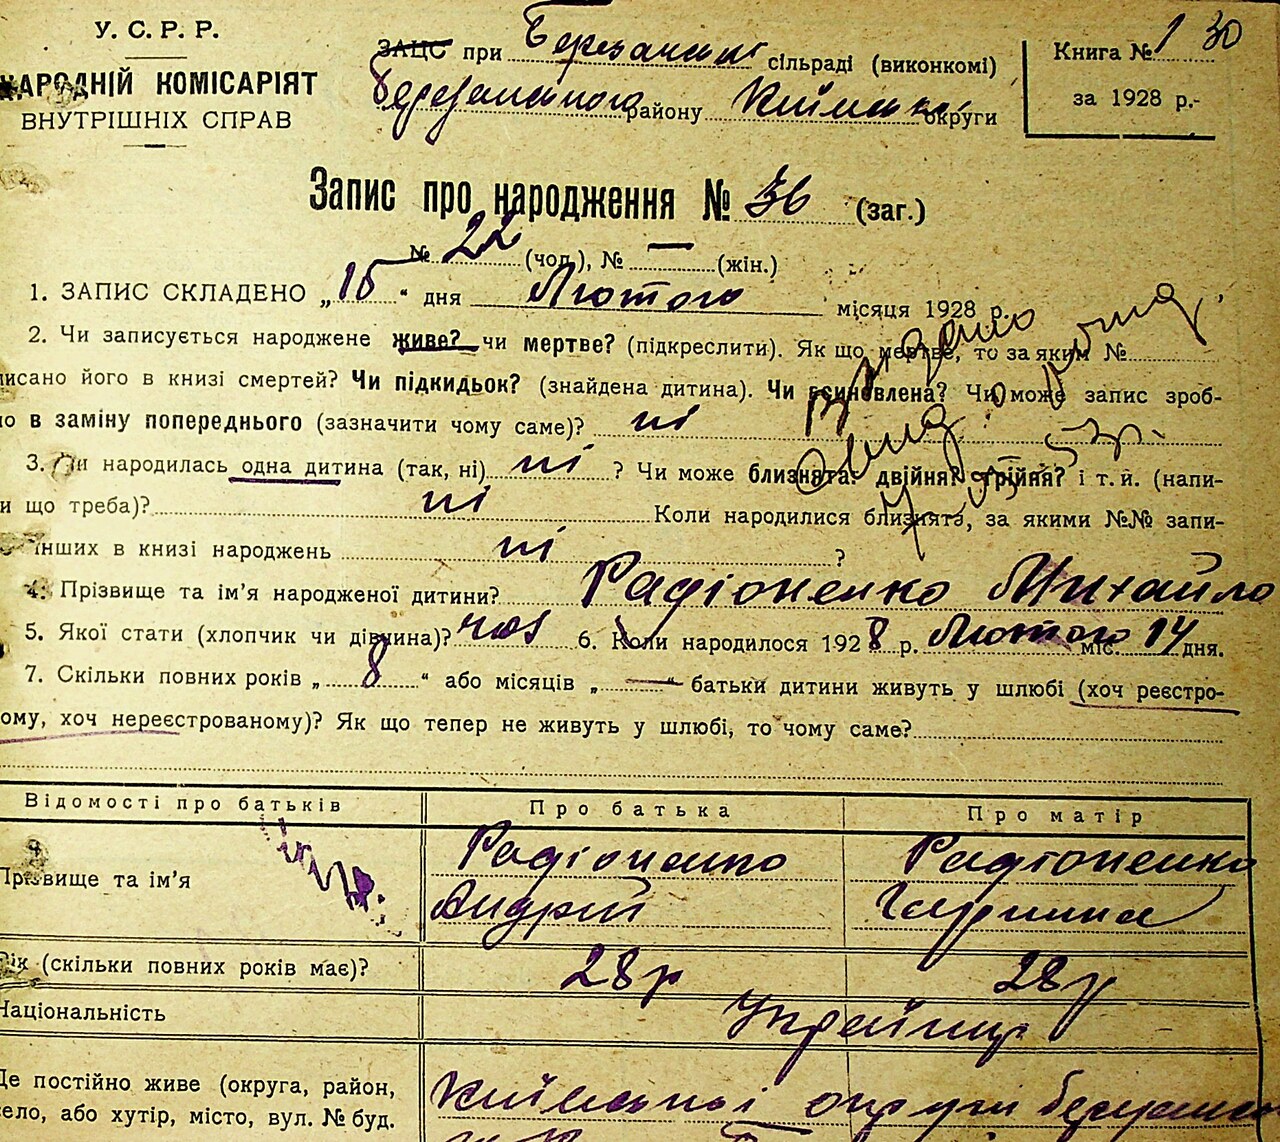 У. С. Р. Р.
НАРОДНІЙ КОМІСАРІЯТ
ВНУТРІШНІХ СПРАВ
ЗАЦС при Березанські сільраді (виконкомі)
Березанського району Київської округи
Книга № 1 30
за 1928 р.-
Запис про народження № 36 (заг.)
№ 22 (чол.), № — (жін.)
1. ЗАПИС СКЛАДЕНО „15“ дня Лютого місяця 1928 р.
2. Чи записується народжене живе? чи мертве? (підкреслити). Як що мертве, то за яким №
писано його в книзі смертей? Чи підкидьок? (знайдена дитина). Чи всиновлена? Чи може запис зроб-
но в заміну попереднього (зазначити чому саме)? ні
3. Чи народилась одна дитина (так, ні) ні ? Чи може близнята: двійня? трійня? і т. и. (напи-
и що треба)? ні Коли народилися близнята, за якими №№ запи-
інших в книзі народжень ні ?
4. Прізвище та ім'я народженої дитини? Радіоненко Михайло
5. Якої стати (хлопчик чи дівчина)? чол 6. Коли народилося 1928 р. Лютого міс. 14 дня.
7. Скільки повних років „ 8 “ або місяців „ — “ батьки дитини живуть у шлюбі (хоч реєстро-
ому, хоч нереєстрованому)? Як що тепер не живуть у шлюбі, то чому саме?
Відомості про батьків Про батька Про матір
Прізвище та ім'я Радіоненко Андрій Радіоненко Гарпина
Вік (скільки повних років має)? 28 р 28 р
Національність Українці
Де постійно живе (округа, район, Київської округи
село, або хутір, місто, вул. № буд.